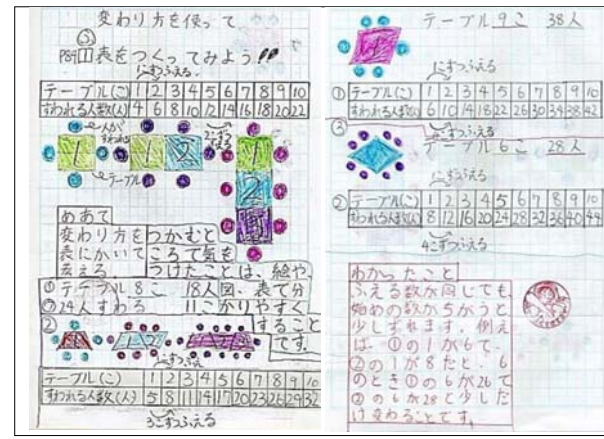 変わり方を使って
③
P84 1 表をつくってみよう!!
1こずつふえる。
テーブル(こ) 1 2 3 4 5 6 7 8 9 10
すわれる人数(人) 4 6 8 10 12 14 16 18 20 22
2こずつふえる
人がすわれる
1 1 2 1
2
テーブル
めあて
変わり方をつかむと
表にかいて ころで気を
考える。 つけたことは、絵や
① テーブル8こ 18人 図、表で分
② 24人すわる 11こ かりやすく
② すること
です。
1こずつふえる
テーブル(こ) 1 2 3 4 5 6 7 8 9 10
すわれる人数(人) 5 8 11 14 17 20 23 26 29 32
3こずつふえる
テーブル9こ 38人
1こずつふえる
① テーブル(こ) 1 2 3 4 5 6 7 8 9 10
すわれる人数(人) 6 10 14 18 22 26 30 34 38 42
③ 4こずつふえる
テーブル6こ 28人
1こずつふえる
② テーブル(こ) 1 2 3 4 5 6 7 8 9 10
すわれる人数(人) 8 12 16 20 24 28 32 36 40 44
4こずつふえる
わかったこと
ふえる数が同じでも、
始めの数がちがうと
少しずれます。例え
ば、①の1が6で、
②の1が8だと、6
のとき①の6が26で
②の6が28と少しだ
け変わることです。